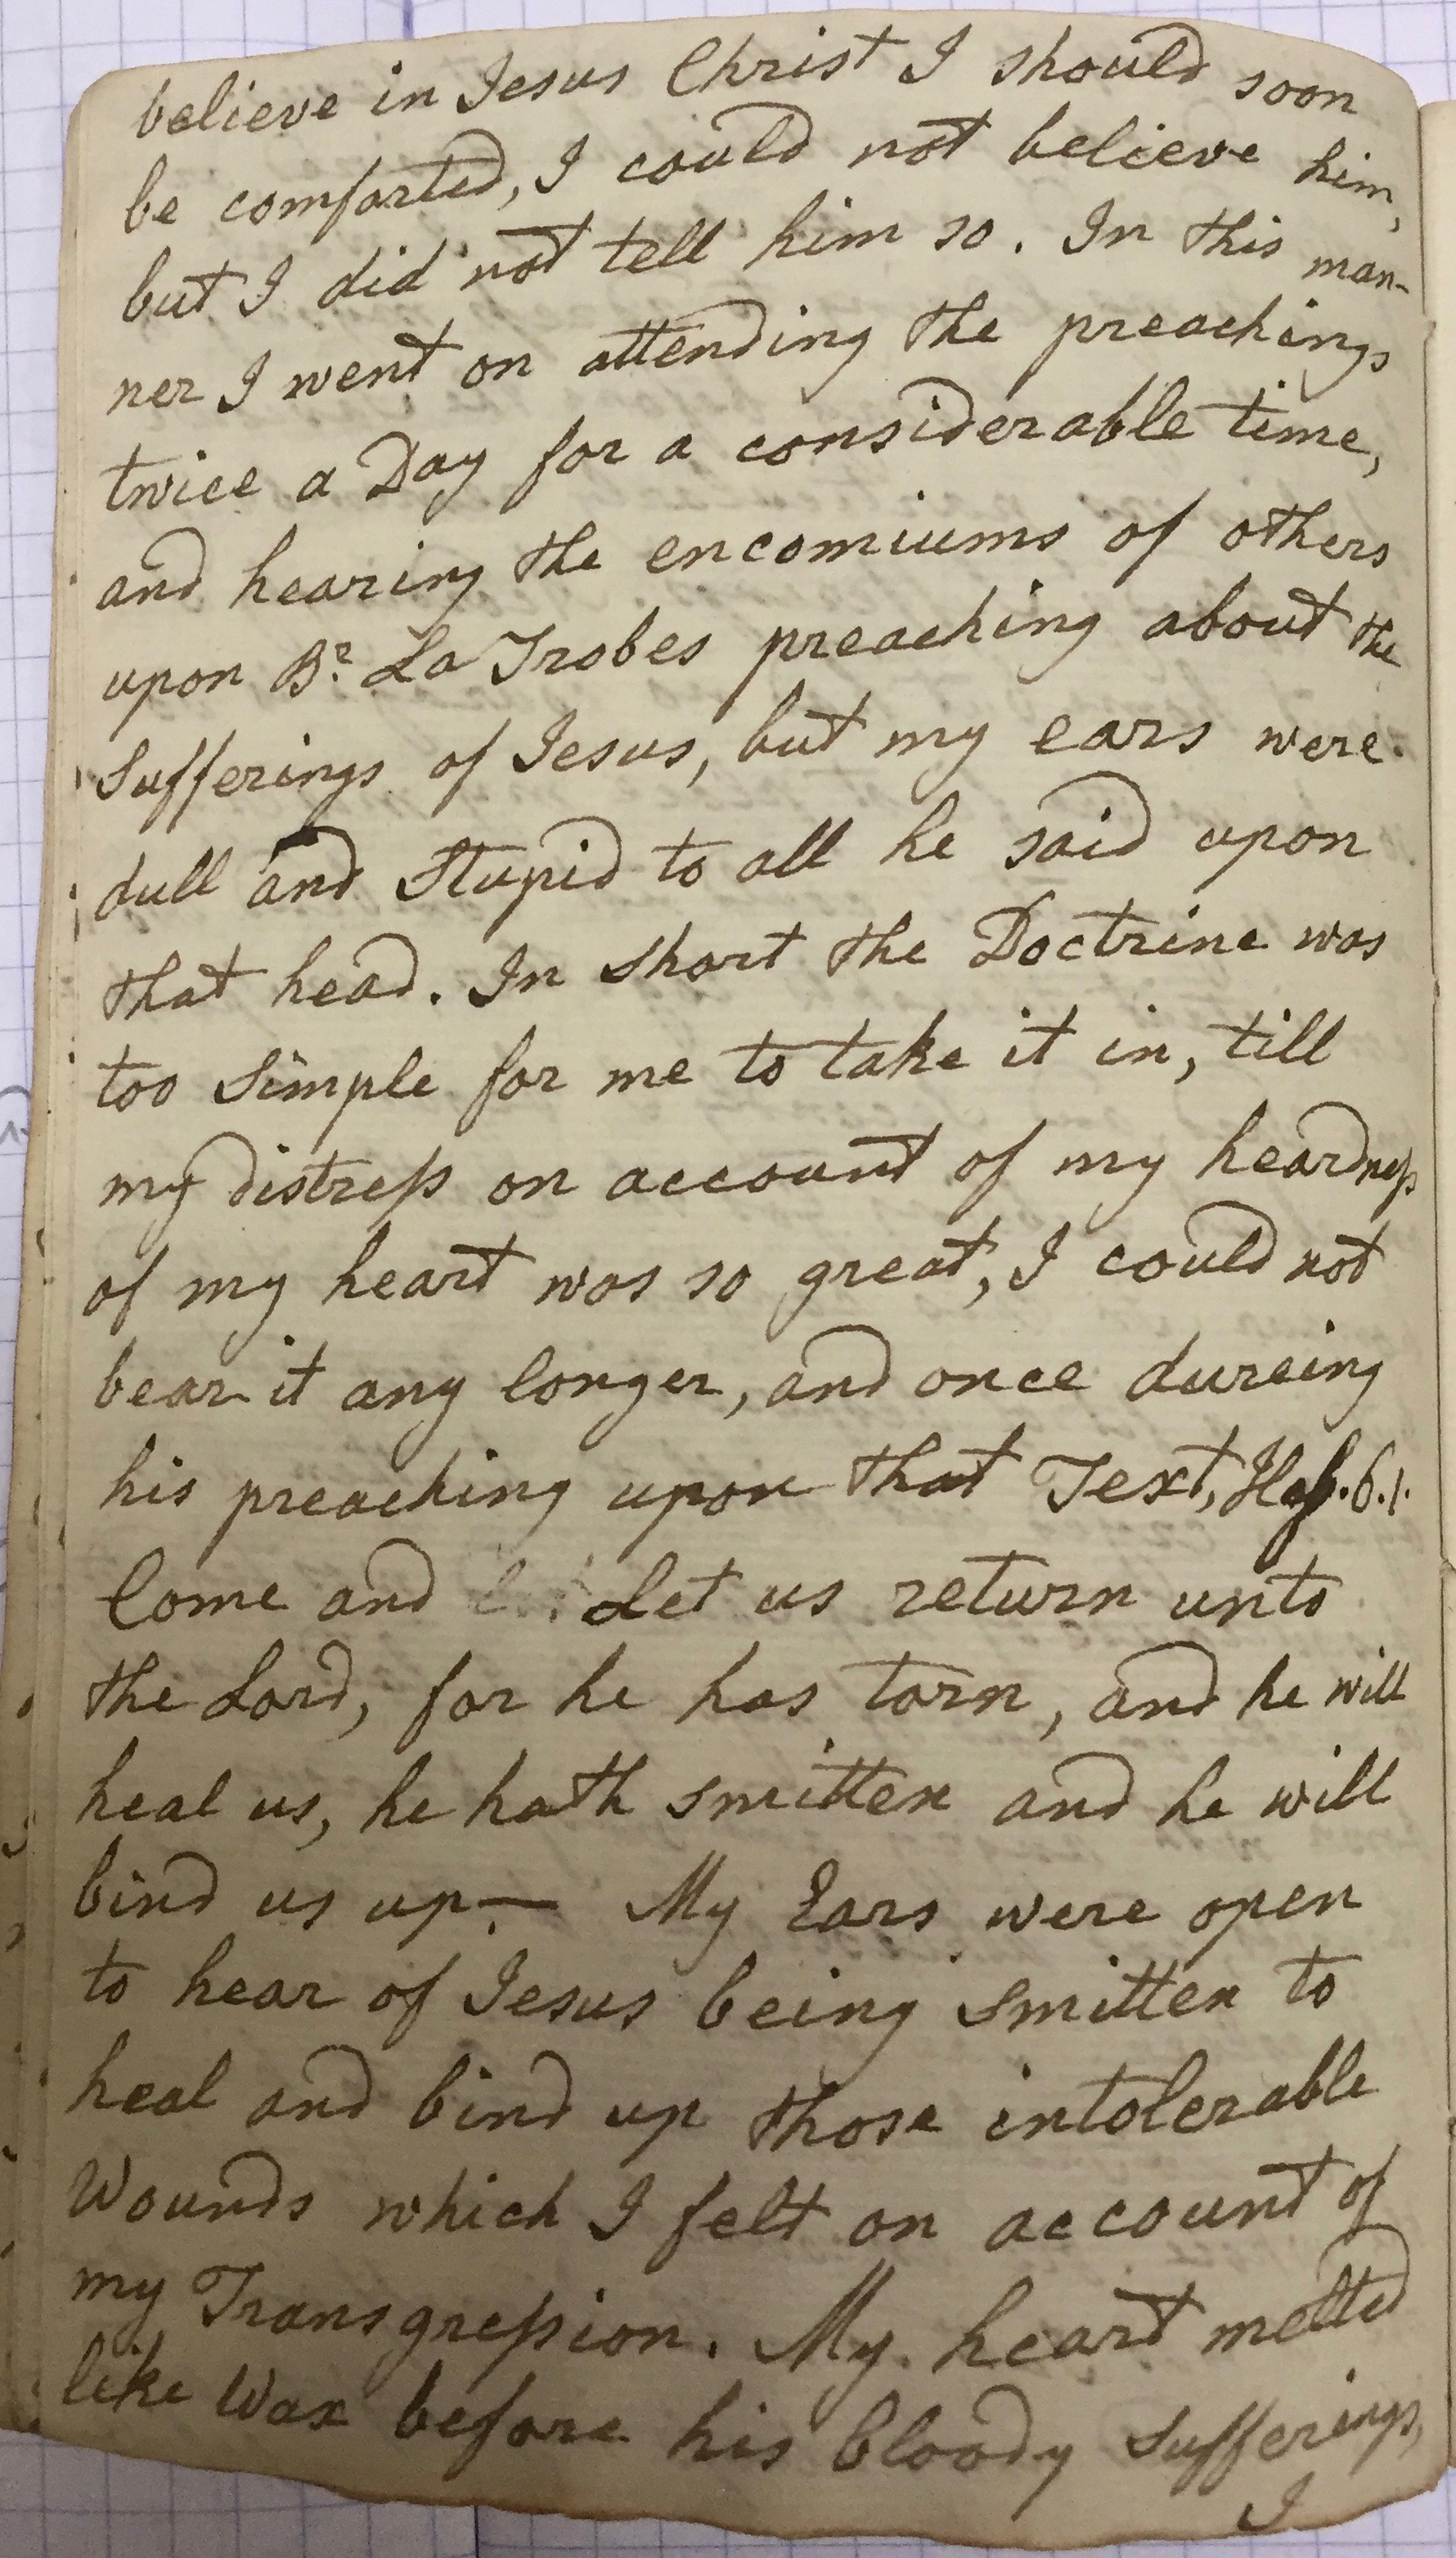 believe in Jesus Christ I should soon
be comforted, I could not believe him,
but I did not tell him so. In this man-
ner I went on attending the preachings
twice a Day for a considerable time,
and hearing the encomiums of others
upon Br. La Trobes preaching about the
Sufferings of Jesus, but my ears were
dull and Stupid to all he said upon
that head. In short the Doctrine was
too Simple for me to take it in, till
my distress on account of my heardness
of my heart was so great, I could not
bear it any longer, and once dureing
his preaching upon that Text, 6.1.
Come and Let us return unto
the Lord, for he has torn, and he will
heal us, he hath smitten and he will
bind us up. — My Ears were open
to hear of Jesus being Smitten to
heal and bind up those intolerable
Wounds which I felt on account of
my Transgression. My heart melted
like Wax before his bloody Sufferings,
I